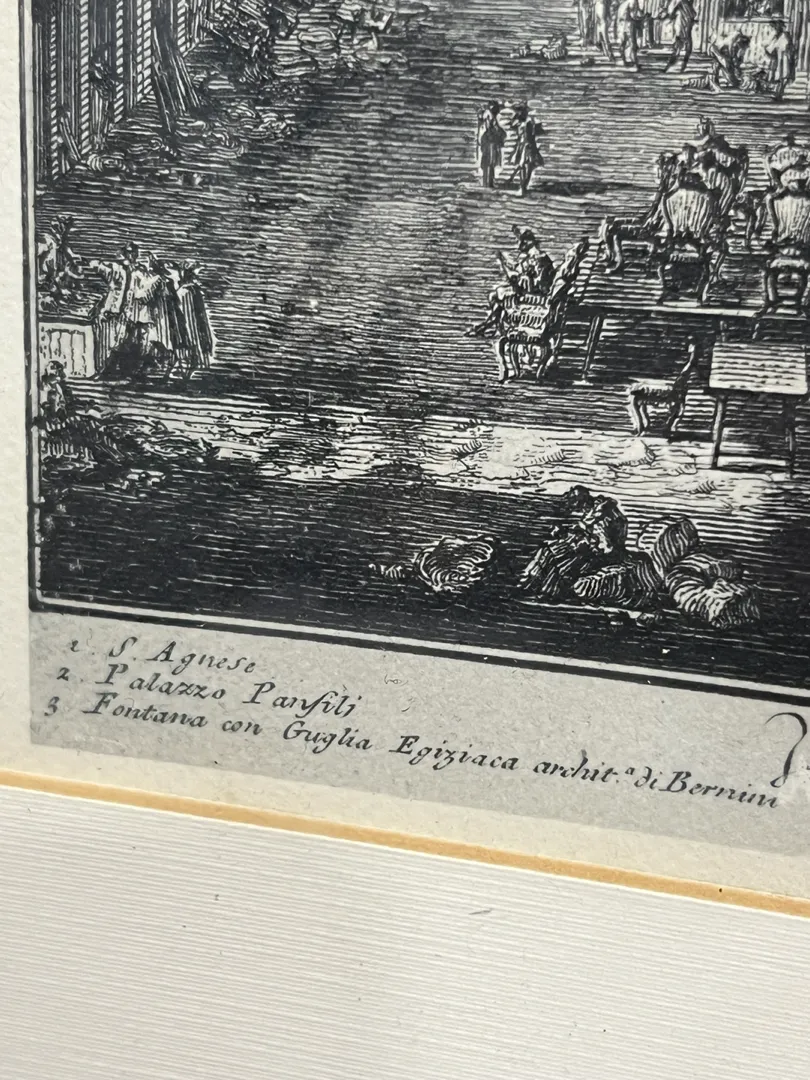 1. S. Agnese
2. Palazzo Panfilj
3 Fontana con Guglia Egiziaca archit.ª di Bernini